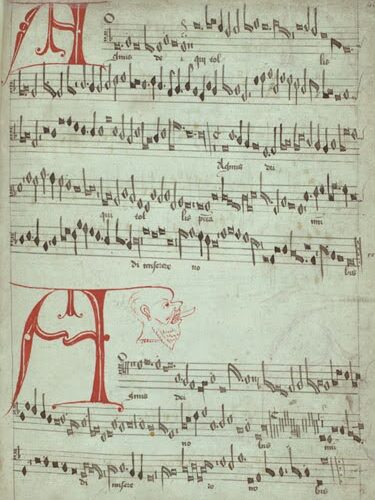 A
gnus de i qui tol lis
Agnus dei
qui tol lis pcca mu
di miserere no bis
A
gnus dei
no bis
di misere